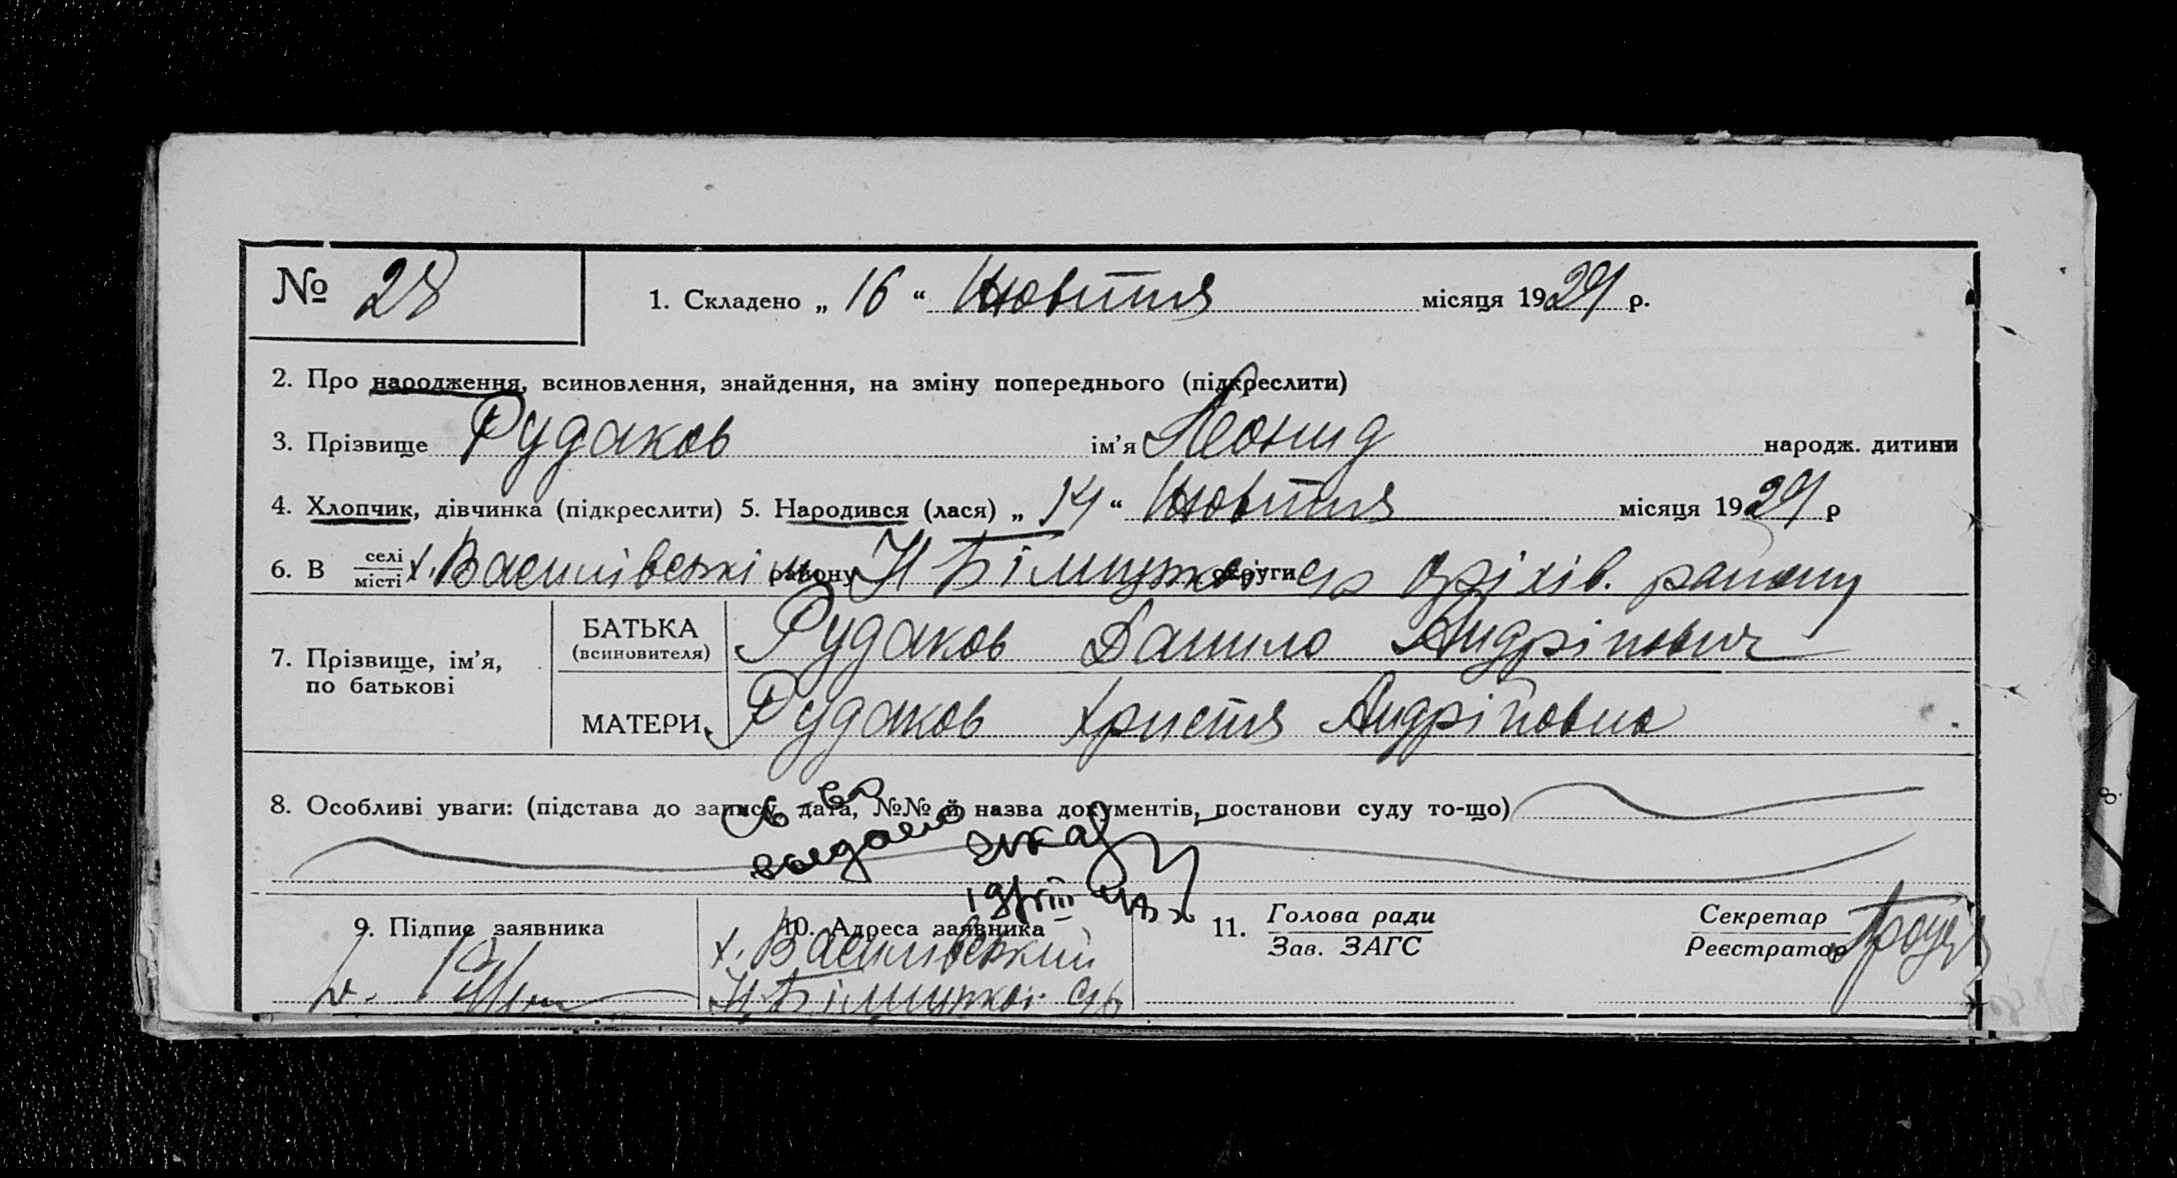 № 28
1. Складено „ 16 “ Жовтня місяця 1929 р.
2. Про народження, всиновлення, знайдення, на зміну попереднього (підкреслити)
3. Прізвище Рудаков ім’я Леонид народж. дитини
4. Хлопчик, дівчинка (підкреслити) 5. Народився (лася) „ 14 “ Жовтня місяця 1929 р
6. В селі місті х. Василівські району округи Оріхів. району
7. Прізвище, ім’я, по батькові
БАТЬКА (всиновителя) Рудаков Данило Андріпович
МАТЕРИ Рудаков Христя Андріповна
8. Особливі уваги: (підстава до запису, дата, №№ й назва документів, постанови суду то-що)
выдано
9. Підпис заявника
10. Адреса заявника
х. Василівський
11. Голова ради
Зав. ЗАГС
Секретар
Реєстратор